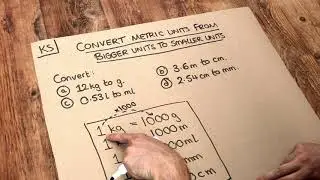 KS
CONVERT METRIC UNITS FROM
BIGGER UNITS TO SMALLER UNITS
Convert:
a 12kg to g.
b 3.6m to cm.
c 0.53l to ml
d 2.54cm to mm.
×1000
1 kg = 1000g
1000m
1000ml
mm
cm